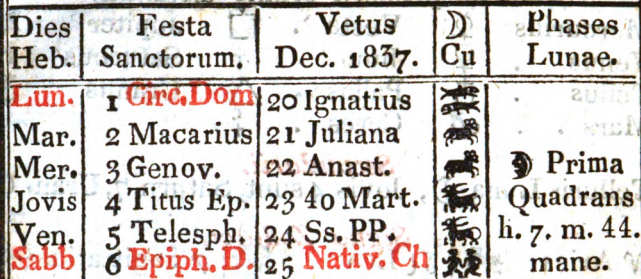 Dies Heb. Festa Sanctorum. Vetus Dec. 1837. ☽ Cu Phases Lunae.
Lun. 1 Circ. Dom 20 Ignatius
Mar. 2 Macarius 21 Juliana
Mer. 3 Genov. 22 Anast. ☽ Prima
Jovis 4 Titus Ep. 23 40 Mart. Quadrans
Ven. 5 Telesph. 24 Ss. PP. h. 7. m. 44.
Sabb 6 Epiph. D. 25 Nativ. Ch mane.